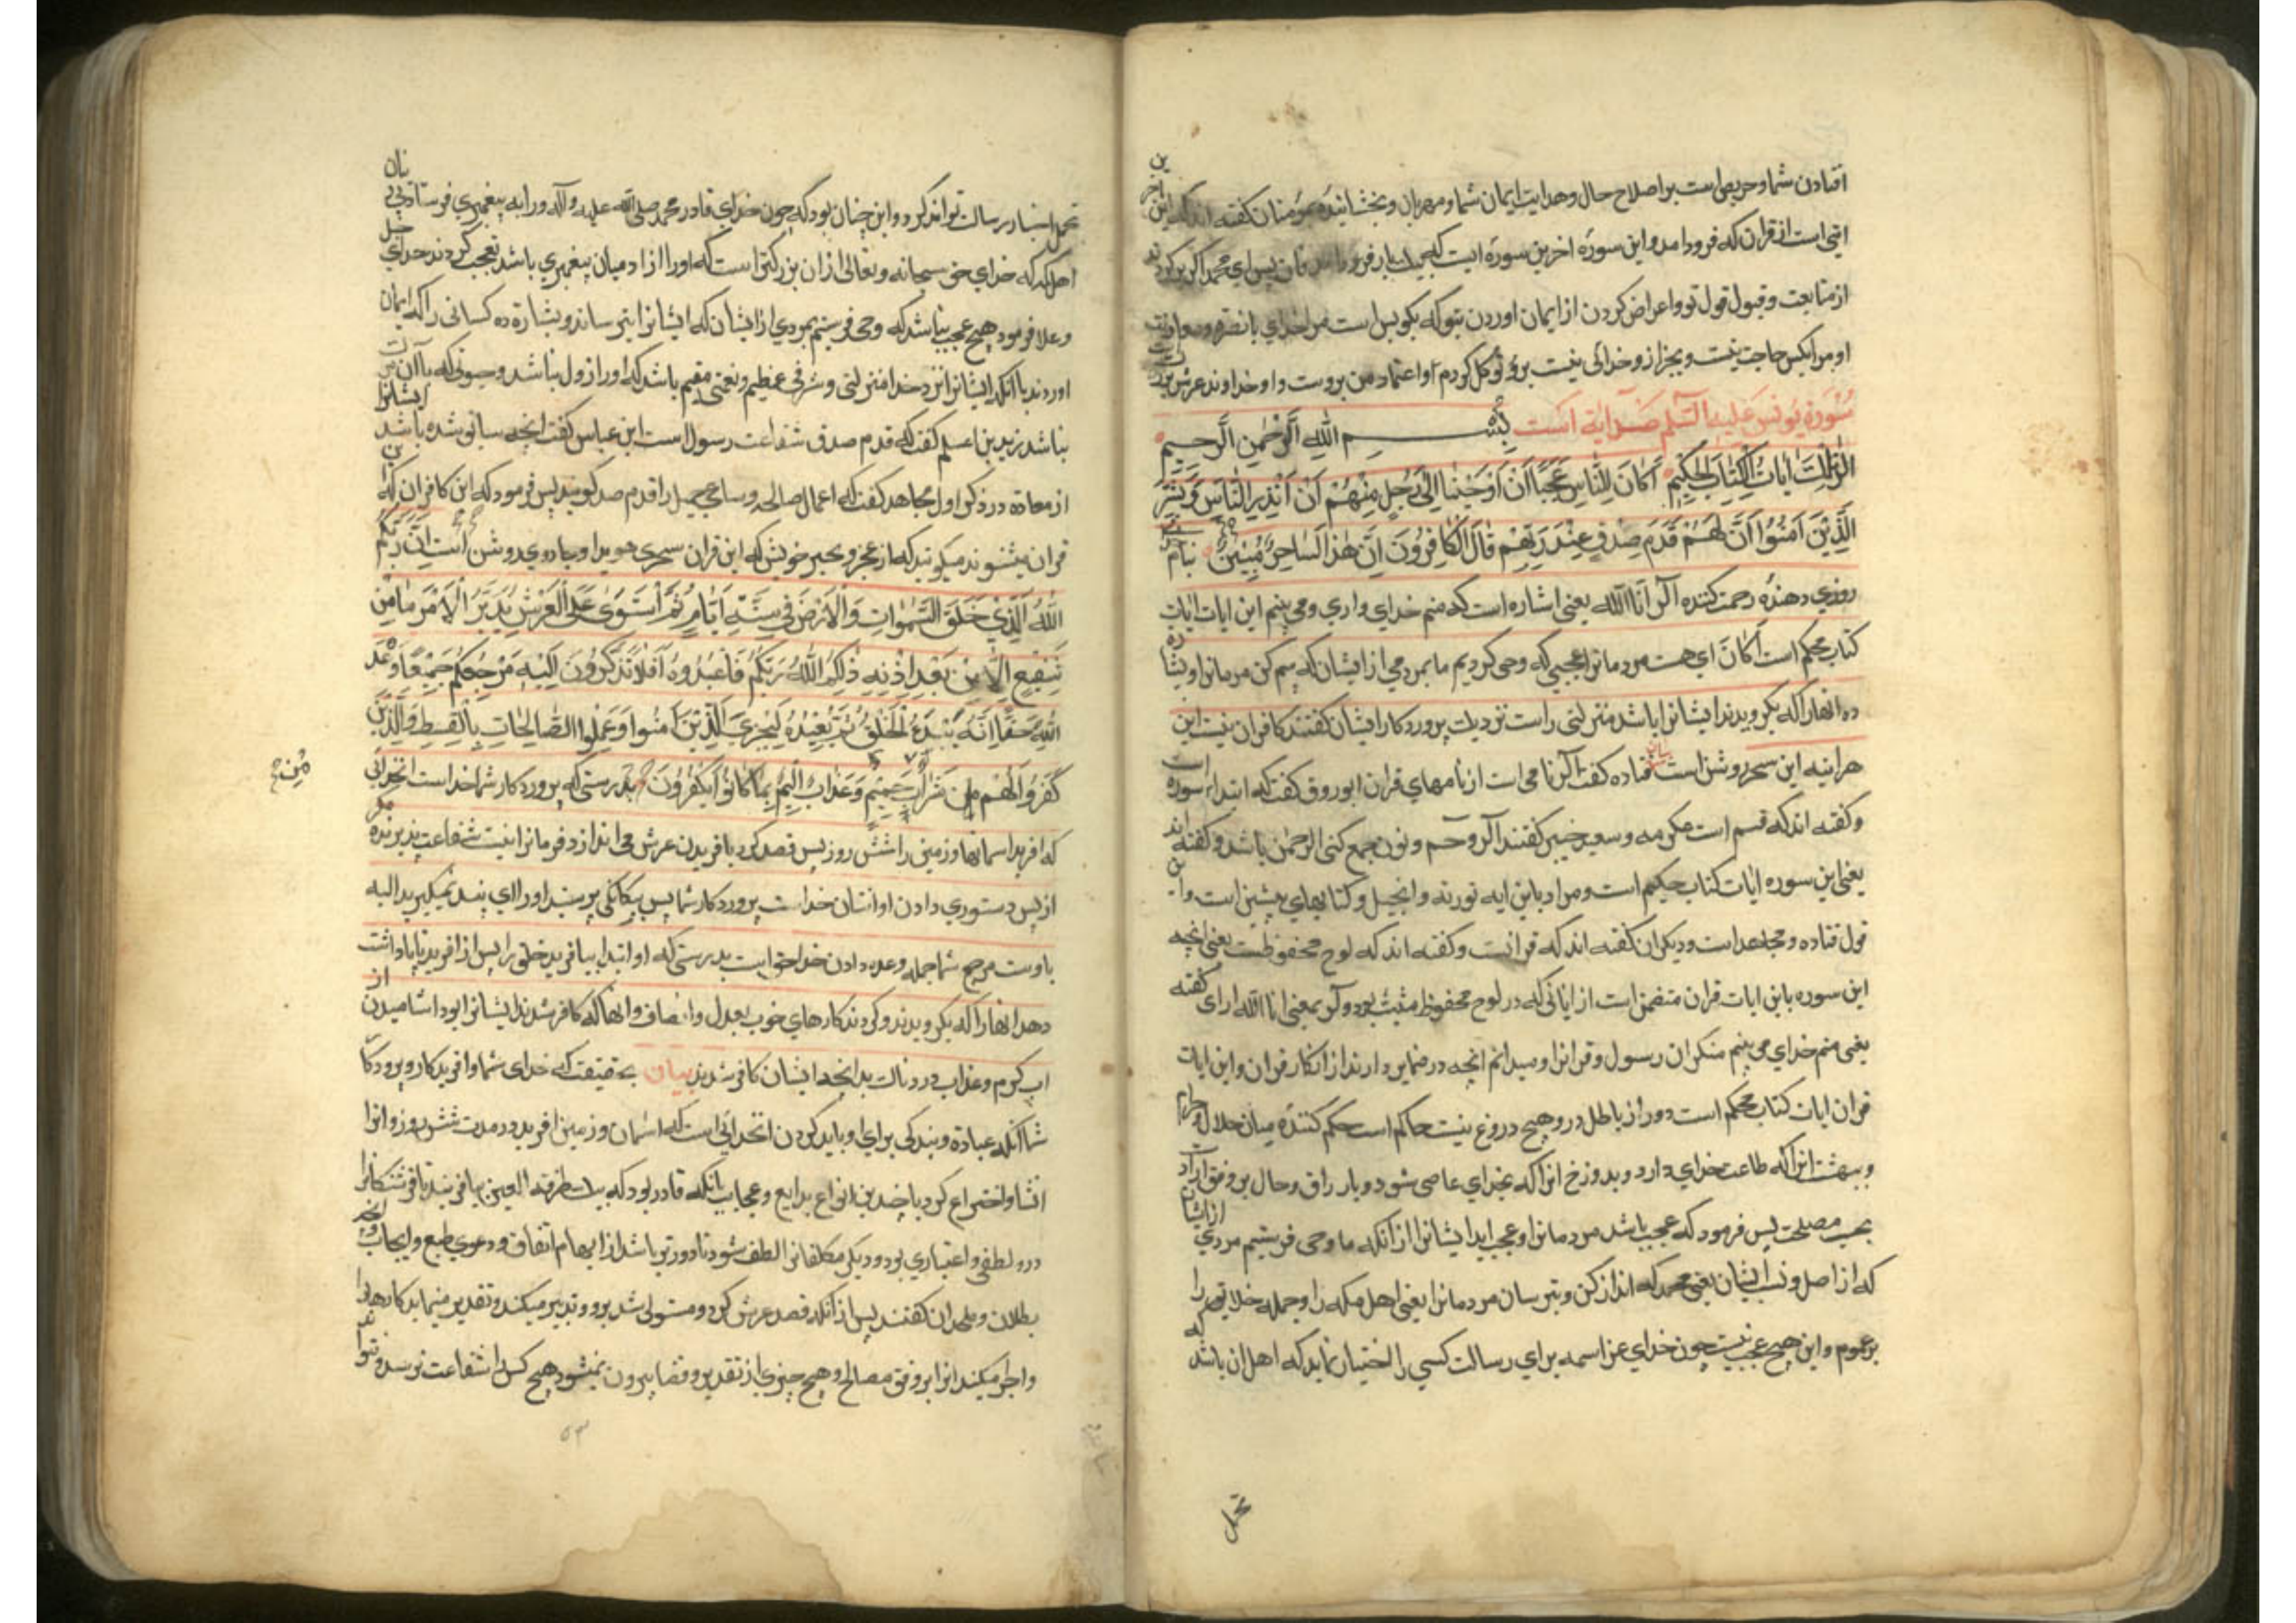 افتادن شما و حریص است بر اصلاح حال و هدایت ایمان شما و مهربان و بخشاینده بمومنان کفته اند که این اخرین
ایتی است از قران که فرود امد و این سورۀ اخرین سورۀ ایت که بیکبار فرود امد پس ای محمد اکر برکردند
از متابعت و قبول قول تو و اعراض کردن از ایمان اوردن بتو که بکو بس است مرا خدای با نصره و معاونت
او مرا بکس حاجت نیست و بجز از و خدائی نیست برو توکل کردم و اعتماد من بروست و او خداوند عرش بزرکست
سورة یونس علیه السلم صد ایة است بسم الله الرحمن الرحیم
الر تلک ایات الکتاب الحکیم اکان للناس عجبا ان اوحینا الی رجل منهم ان انذر الناس و بشر
الذین امنوا ان لهم قدم صدق عند ربهم قال الکافرون ان هذا لساحر مبین بنام خدای
روزی دهندۀ رحمت کننده الر انا الله یعنی اشاره است که منم خدای واری و می بینم این ایات ایات
کتاب محکم است اکان ای هست مردمانرا عجبی که وحی کردیم ما بمردمی از ایشان که بیم کن مرمانرا و بشاره
ده انهارا که بکرویدند ایشانرا باشد منزلتی راست نزدیک پروردکار ایشان کفتند کافران نیست این
هراینه این سحر روشن است بیان قتاده کفت الر نامی است از نامهای قران ابوروق کفت که ابتداء سوره است
و کفته اند که قسم است عکرمه و سعید جبیر کفتند الر و حم و نون جمع کنی الرحمن باشد و کفته اند
یعنی این سوره ایات کتاب حکیم است و مراد باین ایه توریة و انجیل و کتابهای پیشین است و این
قول قتاده و مجاهد است و دیکران کفته اند که قرانست و کفته اند که لوح محفوظست یعنی انچه
این سوره باین ایات قران متضمن است از ایاتی که در لوح محفوظ مثبت بود و الر بمعنی انا الله ارای کفته
یعنی منم خدای می بینم منکران رسول و قرانرا و میدانم انچه در ضمایر دارند از انکار قران و این ایات
قران ایات کتاب محکم است دور از باطل درو هیچ دروغ نیست حاکم است حکم کنندۀ میان حلال و حرام
و ببهشت انرا که طاعت خدای دارد و بدوزخ انرا که بخدای عاصی شود و بارزاق و حال بر وفق ارادت
بحسب مصلحت پس فرمود که عجب باشد مردمانرا و عجب اید ایشانرا از انکه ما وحی فرستیم مردی از ایشان
که از اصل و نسب ایشان یعنی محمد که انذار کن و بترسان مردمانرا یعنی اهل مکه را و جمله خلایق را
بر عموم و این هیچ عجب نیست چون خدای عز اسمه برای رسالت کسی را اختیار نماید که اهل ان باشد که
تحمل
تحمل اعباء رسالت تواند کرد و این چنان بود که چون خدای قادر محمد صلی الله علیه و آله ورا به پیغمبری فرستاد
اهل مکه که خدای حق سبحانه و تعالی از ان بزرکتراست که اورا از ادمیان پیغمبری باشد تعجب کردند خدای جل
و علا فرمود هیچ عجب نباشد که وحی فرستیم بمردی از ایشان که ایشانرا بترساند و بشارة ده کسانی را که ایمان
اوردند باانکه ایشانرا نزد خدا منزلتی و شرفی عظیم و نعیمی مقیم باشد که اورا زول نباشد و
نباشد زید بن اسلم کفت که قدم صدق شفاعت رسول است ابن عباس کفت انچه سابق شده باشد ایشانرا
از سعادة در ذکر اول مجاهد کفت که اعمال صالحه و مساعی جمیل را قدم صدق کویند پس فرمود که این کافران که
قران بشنوند میکویند که از عجز و تحیر خویش که این قران سحری هویدا و جادوی روشن است ان ربکم
الله الذی خلق السموات و الارض فی ستة ایام ثم استوی علی العرش یدبر الامر ما من
شفیع الا من بعد اذنه ذلکم الله ربکم فاعبدوه افلا تذکرون الیه مرجعکم جمیعا وعد
الله حقا انه یبدء الخلق ثم یعیده لیجزی الذین امنوا و عملوا الصالحات بالقسط و الذین
کفروا لهم شراب من حمیم و عذاب الیم بما کانوا یکفرون بدرستی که پروردکار شما خداست انخدائی
که افرید اسمانها و زمین را شش روز پس قصد کرد بافریدن عرش می اندازد فرمانرا نیست شفاعت پذیرنده مکر
از پس دستوری دادن او انتان خداست پروردکار شما پس بیکانکی پرستید اورا ای پند نمیکیرید الیه
باوست مرجع شما جمله وعده دادن خدا حقست بدرستی که او ابتدا بیافرید خلق را پس از افرید تا پاداشت
دهد انهارا که بکرویدند و کردند کارهای خوب بعدل و انصاف و انهاکه کافر شدند ایشانرا بود اشامیدن از
اب کرم و عذاب دردناک بدانچه ایشان کافر شدند بیان بحقیقت که خدای شما و افریدکار و پروردکار
شما انکه عبادة و بندکی برای و باید کردن انخدائی است که اسمان و زمین افرید در مدت شش روز و انرا
انشا و اختراع کرد با چندین انواع بدایع و عجایب بانکه قادر بود که بیک طرفة العین بیافریند تا فرشتکانرا
درو لطفی و اعتباری بود و دیکر مکلفانرا لطف شود تا دورتر باشد از ابهام اتفاق و دعوی طبع و ایجاب
بطلان و ملحدان کفتند پس از انکه قصد عرش کرد و مستولی شد برو و تدبیر میکند و تقدیر مینماید کارها را
و اجرا میکند انرا بر وفق مصالح و هیچ چیزی از تقدیر و قضا بیرون نمیشود هیچ کس را شفاعت نرسد و نتواند